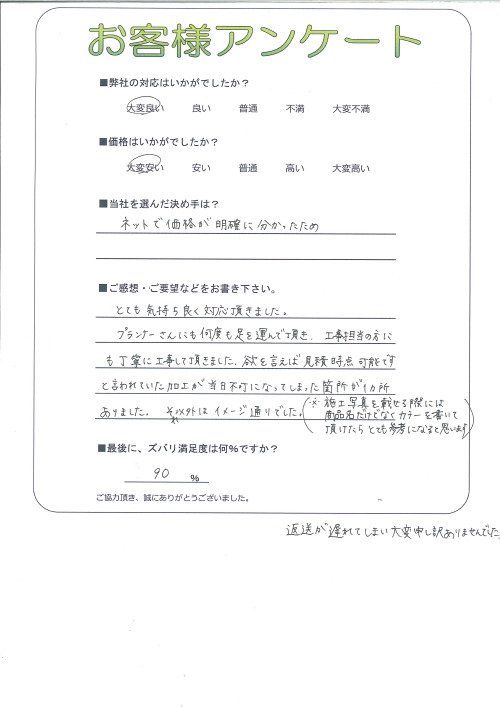 お客様アンケート
■弊社の対応はいかがでしたか？
大変良い 良い 普通 不満 大変不満
■価格はいかがでしたか？
大変安い 安い 普通 高い 大変高い
■当社を選んだ決め手は？
ネットで価格が明確に分かったため
■ご感想・ご要望などをお書き下さい。
とても気持ち良く対応頂きました。
プランナーさんにも何度も足を運んで頂き、工事担当の方に
も丁寧に工事して頂きました。欲を言えば見積時点可能です
と言われていた加工が当日不可になってしまった箇所が1カ所
ありました。それ以外はイメージ通りでした。
(※施工写真を載せる際には
商品名だけでなくカラーを書いて
頂けたらとても参考になると思います)
■最後に、ズバリ満足度は何％ですか？
90 ％
ご協力頂き、誠にありがとうございました。
返送が遅れてしまい大変申し訳ありませんでした。